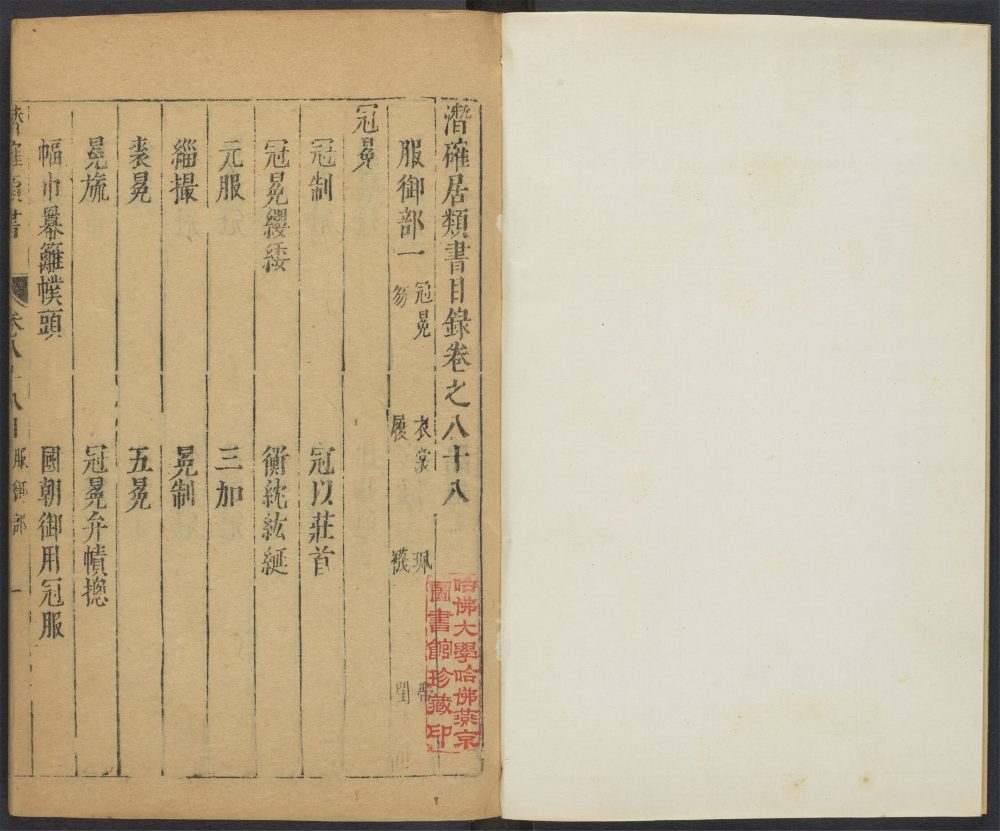 潛確居類書目錄卷之八十八
服御部一 冠冕 衣裳 珮 帶
笏 履 襪
冠冕
冠制 冠以莊首
冠冕纓緌 衡紞紘綖
元服 三加
緇撮 冕制
裘冕 五冕
冕旒 冠冕弁幘摠
幅巾羃䍦幞頭 國朝御用冠服
潛確類書 卷八十八目 服御部 一
哈佛大學哈佛燕京
圖書館珍藏印